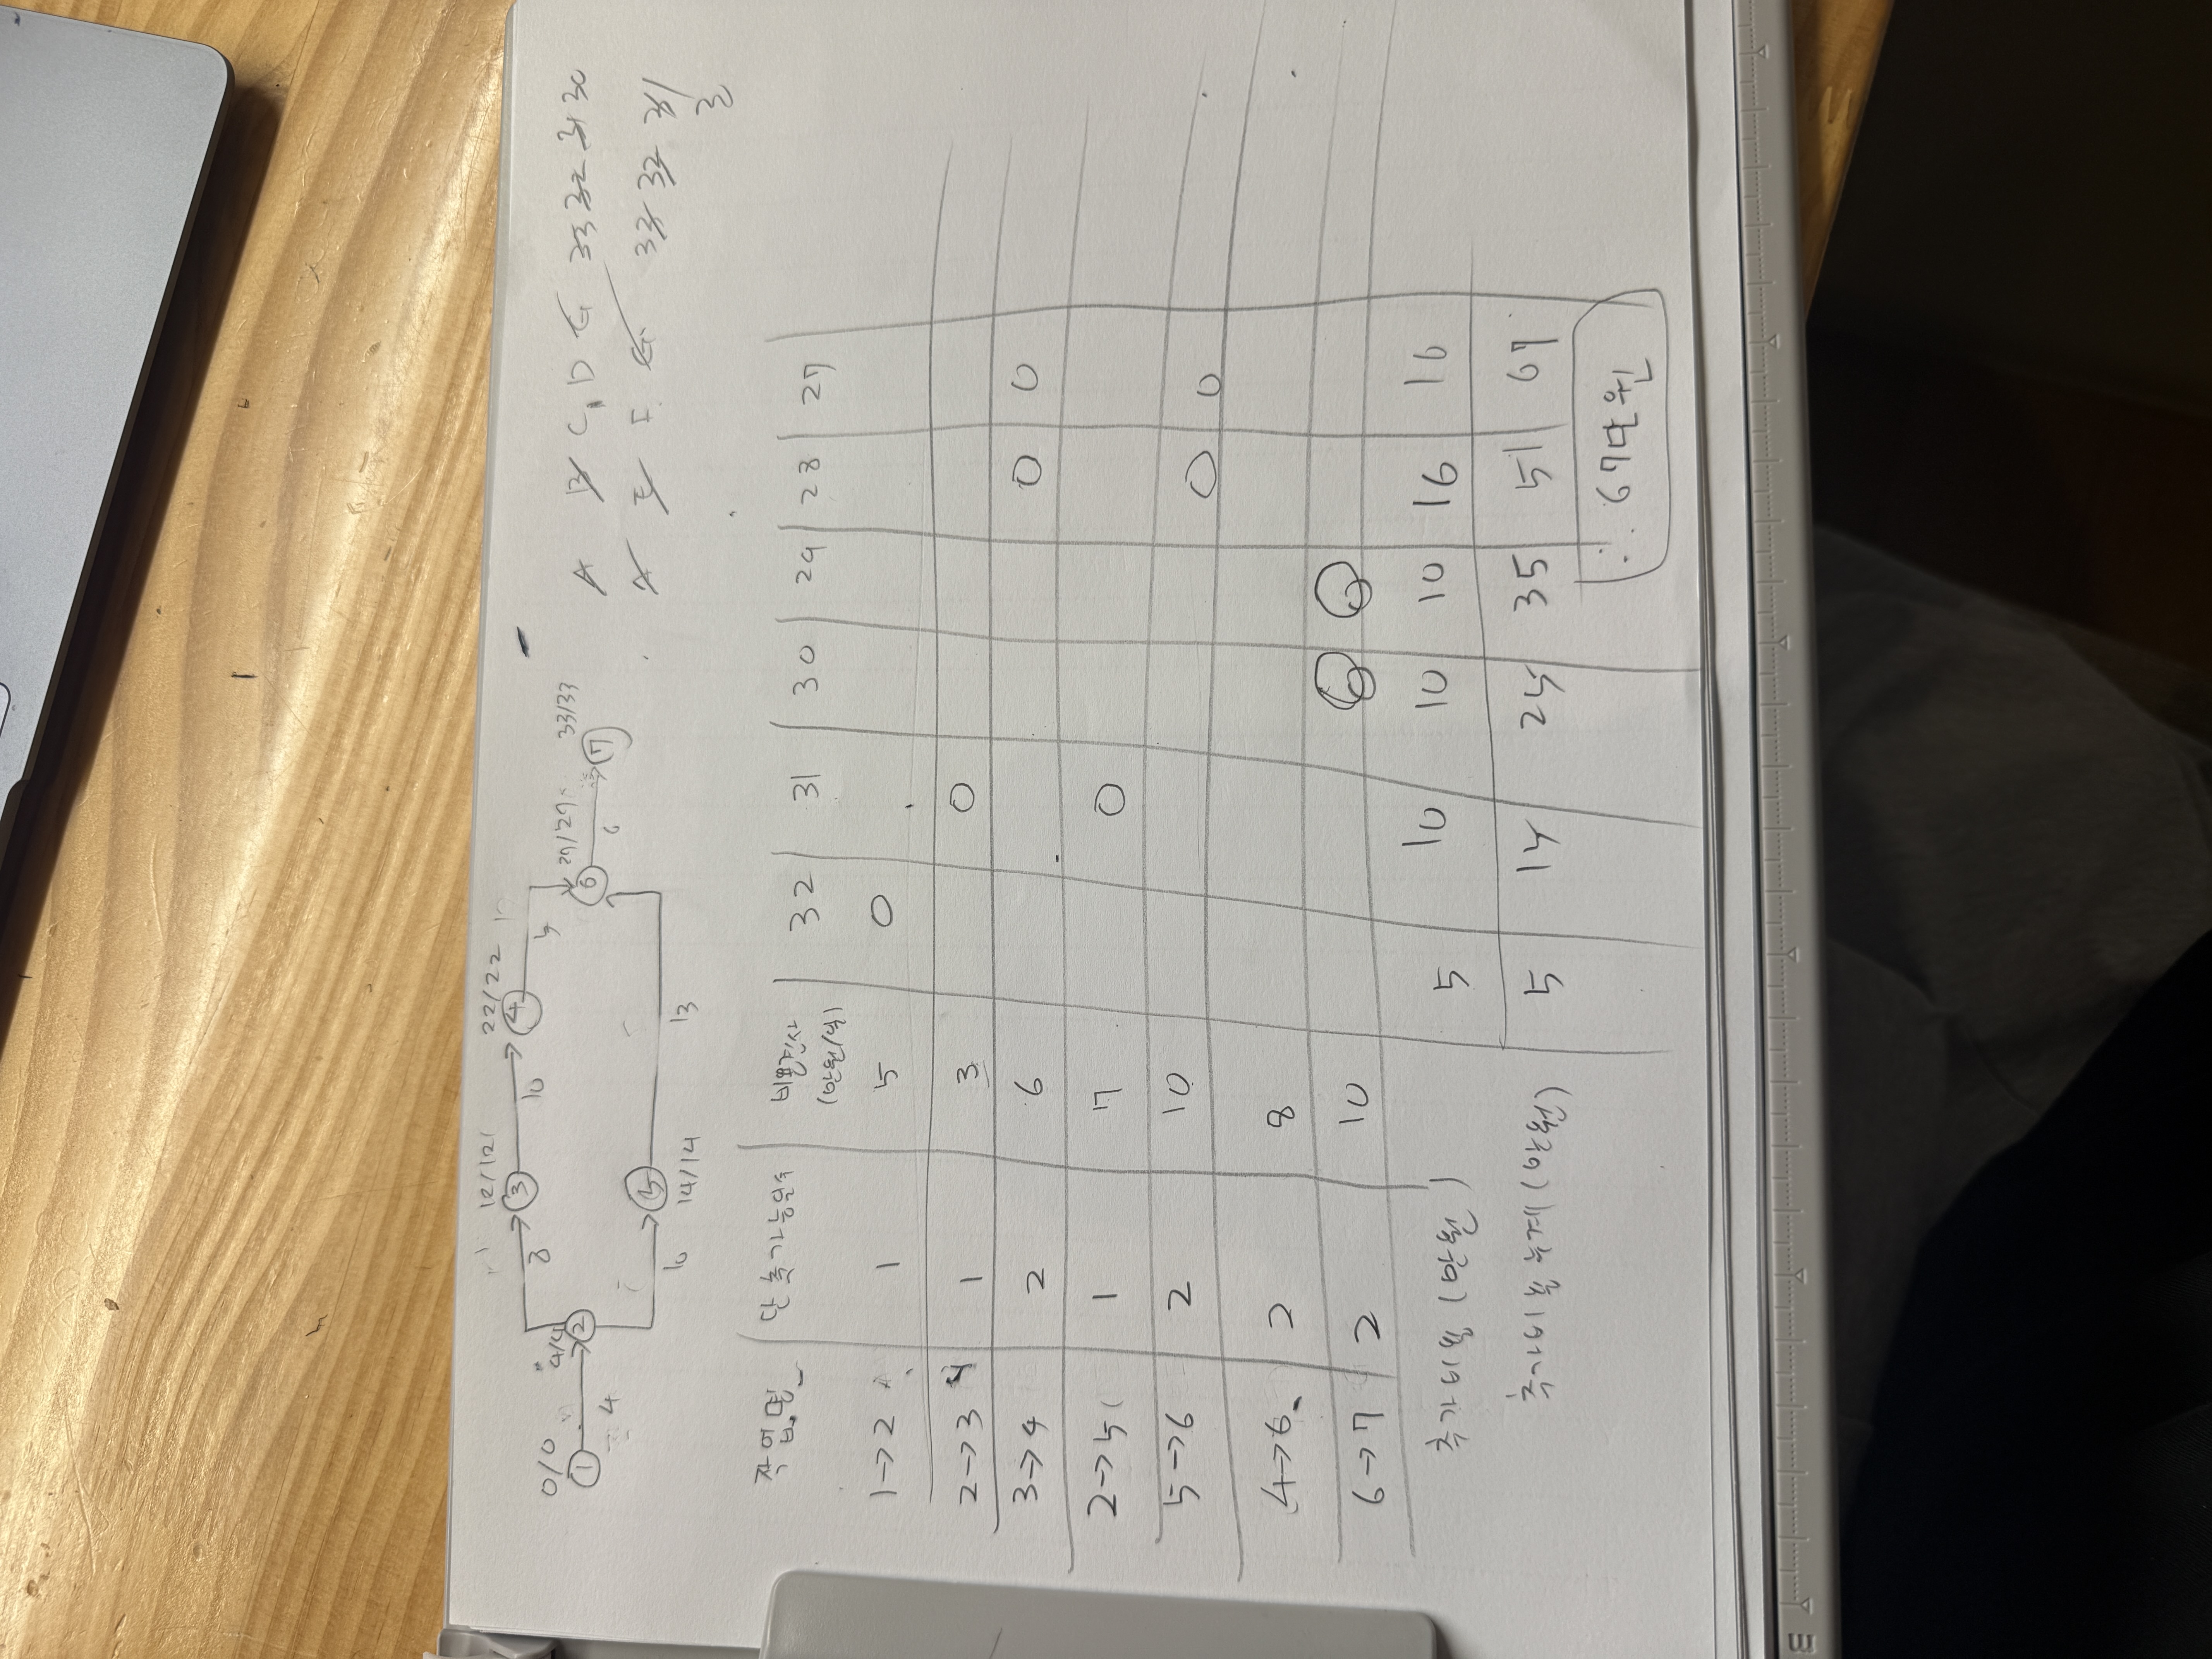 0/0 4/4 12/12 22/22 27/27 33/33
① ② ③ ④ ⑤ ⑥ ⑦
4 8 10 5 6
10 14/14 13
A B C, D G 33 32 31 30
A E F G 33 32 31
30
작업명 단축가능일수 비용경사 (만원/일) 32 31 30 29 28 27
1→2 1 5 0
2→3 1 3 0
3→4 2 6 0 0
2→5 1 7 0
5→6 2 10 0 0
4→6 2 8
6→7 2 10 0 0
추가비용 (만원) 5 10 10 10 16 16
추가비용누계 (만원) 5 14 24 35 51 67
∴ 67만원
3